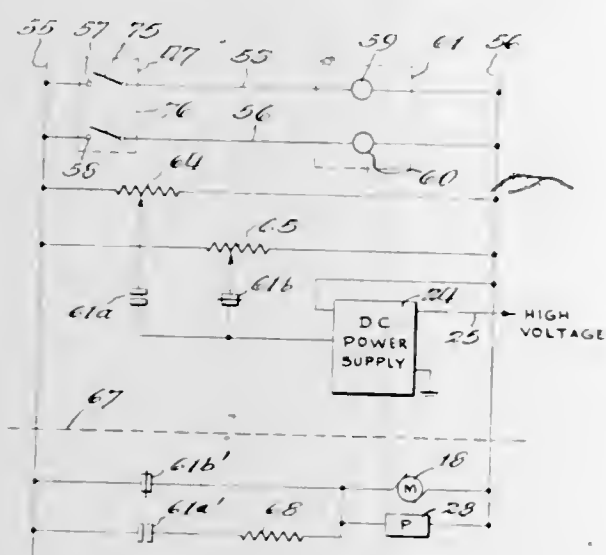 55 57 75 77 55 59 61 56
76 56
58 64 60
65
61a 61b 24
DC
POWER
SUPPLY
25
HIGH
VOLTAGE
67
61b' 18
M
61a' 68 P 23